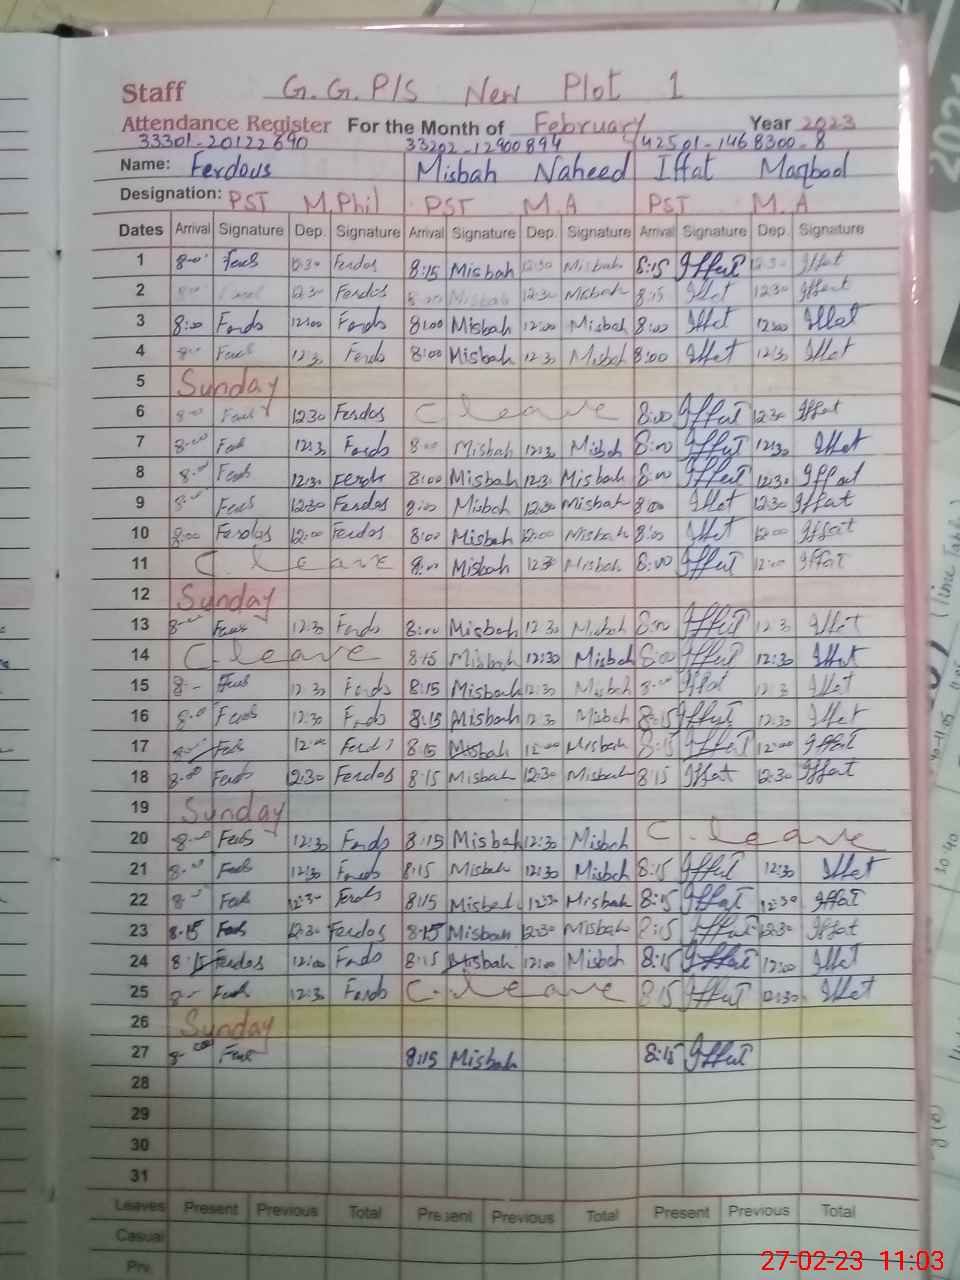 Staff G.G.P/S New Plot 1
Attendance Register For the Month of February Year 2023
33301-20122690 33202-12900894 42501-1468300-8
Name: Ferdous Misbah Naheed Iffat Maqbool
Designation: PST M.Phil PST M.A PST M.A
Dates Arrival Signature Dep. Signature Arrival Signature Dep. Signature Arrival Signature Dep. Signature
1 8-00 12:30 Ferdos 8:15 Misbah 12:30 Misbah 8:15 Iffat 12:30 Iffat
2 12:30 Ferdos 8:00 Misbah 12:30 Misbah 8:15 Iffat 12:30 Iffat
3 8:00 Ferds 12:00 Ferds 8:00 Misbah 12:00 Misbah 8:00 Iffat 12:00 Iffat
4 8-0 12:3 Ferds 8:00 Misbah 12:3 Misbah 8:00 Iffat 12:3 Iffat
5 Sunday
6 8-0 12:30 Ferdos C leave 8:00 Iffat 12:30 Iffat
7 8-00 12:3 Ferds 8-0 Misbah 12:30 Misbah 8:00 Iffat 12:30 Iffat
8 8-0 12:30 Ferds 8:00 Misbah 12:3 Misbah 8:00 Iffat 12:30 Iffat
9 12:30 Ferdos 8:00 Misbah 12:30 Misbah 8:00 Iffat 12:30 Iffat
10 8:00 Ferdos 12:00 Ferdos 8:00 Misbah 12:00 Misbah 8:00 Iffat 12:00 Iffat
11 C. leave 8:00 Misbah 12:30 Misbah 8:00 Iffat 12:00 Iffat
12 Sunday
13 12:30 Ferds 8:00 Misbah 12:30 Misbah 8:00 Iffat 12:3 Iffat
14 C. leave 8:15 Misbah 12:30 Misbah 8:00 Iffat 12:30 Iffat
15 8- 12:30 Ferds 8:15 Misbah 12:30 Misbah 8-0 Iffat 12:3 Iffat
16 8-0 Ferds 12:30 Ferds 8:15 Misbah 12:3 Misbah 8:15 Iffat 12:30 Iffat
17 12:00 Ferds 8:15 Misbah 12:00 Misbah 8:15 Iffat 12:00 Iffat
18 8-00 Ferds 12:30 Ferdos 8:15 Misbah 12:30 Misbah 8:15 Iffat 12:30 Iffat
19 Sunday
20 8-0 Ferds 12:30 Ferds 8:15 Misbah 12:30 Misbah C. leave
21 8-0 12:30 Ferds 8:15 Misbah 12:30 Misbah 8:15 Iffat 12:30 Iffat
22 8- 12:3- Ferds 8:15 Misbah 12:30 Misbah 8:15 Iffat 12:30 Iffat
23 8-15 12:30 Ferdos 8:15 Misbah 12:30 Misbah 8:15 Iffat 12:30 Iffat
24 8:15 Ferdos 12:00 Ferdo 8:15 Misbah 12:00 Misbah 8:15 Iffat 12:00 Iffat
25 8- 12:3 Ferds C. leave 8:15 Iffat 12:30 Iffat
26 Sunday
27 8:15 Misbah 8:15 Iffat
28
29
30
31
Leaves Present Previous Total Present Previous Total Present Previous Total
Casual
Prv.
27-02-23 11:03